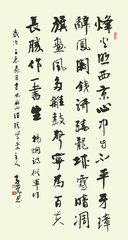 烽火照西京心中自不平牙璋
辭鳳闕鐵騎繞龍城雪暗凋
旗畫風多雜鼓聲寧為百夫
長勝作一書生 楊炯詩從軍行